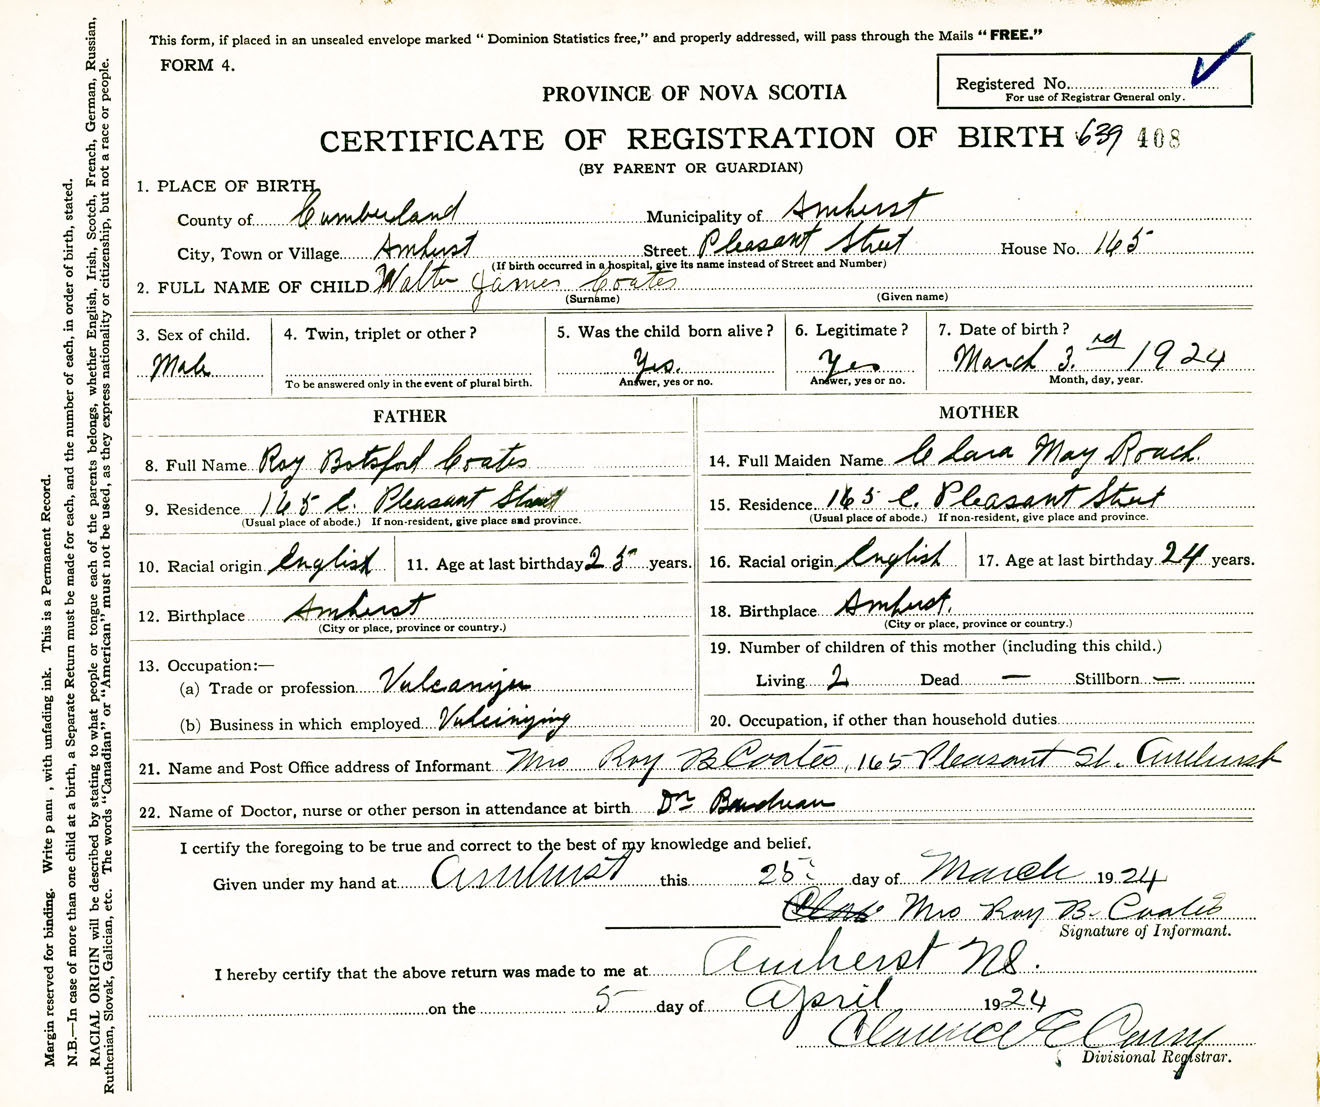 This form, if placed in an unsealed envelope marked " Dominion Statistics free," and properly addressed, will pass through the Mails "FREE."
FORM 4.
Registered No.
For use of Registrar General only.
PROVINCE OF NOVA SCOTIA
CERTIFICATE OF REGISTRATION OF BIRTH 639 408
(BY PARENT OR GUARDIAN)
1. PLACE OF BIRTH,
County of Cumberland Municipality of Amherst
City, Town or Village Amherst Street Pleasant Street House No. 165
(If birth occurred in a hospital, give its name instead of Street and Number)
2. FULL NAME OF CHILD Walter James Coates
(Surname) (Given name)
3. Sex of child. Male
4. Twin, triplet or other?
To be answered only in the event of plural birth.
5. Was the child born alive? Yes.
Answer, yes or no.
6. Legitimate? Yes
Answer, yes or no.
7. Date of birth? March 3rd 1924
Month, day, year.
FATHER
8. Full Name Roy Botsford Coates
9. Residence 165 E. Pleasant Street
(Usual place of abode.) If non-resident, give place and province.
10. Racial origin English 11. Age at last birthday 25 years.
12. Birthplace Amherst
(City or place, province or country.)
13. Occupation:—
(a) Trade or profession Vulcanizer
(b) Business in which employed Vulcinizing
MOTHER
14. Full Maiden Name Clara May Roach.
15. Residence 165 E. Pleasant Street
(Usual place of abode.) If non-resident, give place and province.
16. Racial origin English 17. Age at last birthday 24 years.
18. Birthplace Amherst.
(City or place, province or country.)
19. Number of children of this mother (including this child.)
Living 2 Dead — Stillborn —
20. Occupation, if other than household duties
21. Name and Post Office address of Informant Mrs Roy B Coates, 165 Pleasant St. Amherst
22. Name of Doctor, nurse or other person in attendance at birth Dr
I certify the foregoing to be true and correct to the best of my knowledge and belief.
Given under my hand at Amherst this 25 day of March 1924
Mrs Roy B. Coates
Signature of Informant.
I hereby certify that the above return was made to me at Amherst NS.
on the 5 day of April 1924
Clarence E
Divisional Registrar.
Margin reserved for binding. Write p ain , with unfading ink. This is a Permanent Record.
N.B.—In case of more than one child at a birth, a Separate Return must be made for each, and the number of each, in order of birth, stated.
RACIAL ORIGIN will be described by stating to what people or tongue each of the parents belongs, whether English, Irish, Scotch, French, German, Russian,
Ruthenian, Slovak, Galician, etc. The words "Canadian" or "American" must not be used, as they express nationality or citizenship, but not a race or people.